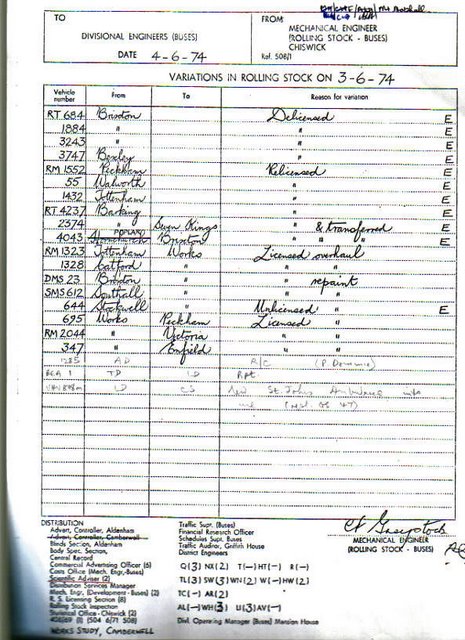 TO
DIVISIONAL ENGINEERS (BUSES)
DATE 4-6-74
FROM
MECHANICAL ENGINEER
(ROLLING STOCK - BUSES)
CHISWICK
Ref. 508/1
VARIATIONS IN ROLLING STOCK ON 3-6-74
Vehicle number From To Reason for variation
RT 684 Brixton Delicensed E
1884 " " E
3243 " " E
3747 Bexley " E
RM 1552 Peckham Relicensed E
55 Walworth " E
1432 Tottenham " E
RT 4237 Barking " E
2374 " Seven Kings " & transferred E
4043 POPLAR Brixton " " " E
RM 1323 Tottenham Works Licensed overhaul
1328 Catford " " "
DMS 23 Brixton " " repaint
SMS 612 Southall " " "
644 Stockwell " Unlicensed " E
695 Works Peckham Licensed "
RM 2044 " Victoria " "
347 " Enfield " "
1285 AD R/C
BCA 1 TD LD Rpt
LD CS St Johns
DISTRIBUTION
Advert. Controller, Aldenham
Advert. Controller, Camberwell
Blinds Section, Aldenham
Body Spec. Section,
Central Record
Commercial Advertising Officer (6)
Costs Office (Mech. Engr.-Buses)
Scientific Adviser (2)
Distribution Services Manager
Mech. Engr. (Development - Buses) (2)
R. S. Licensing Section (8)
Rolling Stock Inspection
Statistical Office - Chiswick (2)
406/69 (1) (504 6/71 508)
WORKS STUDY, CAMBERWELL
Traffic Supt. (Buses)
Financial Research Officer
Schedules Supt. Buses
Traffic Auditor, Griffith House
District Engineers
Q(3) NX(2) T(—) HT(—) R(—)
TL(3) SW(3) WN(2) W(—) HW(2)
TC(—) AR(2)
AL(—) WH(3) U(3) AV(—)
Divl. Operating Manager (Buses) Mansion House
MECHANICAL ENGINEER
(ROLLING STOCK - BUSES)